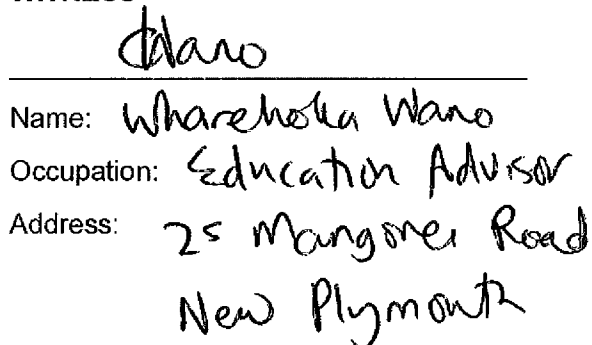 Wano
Name: Wharehoka Wano
Occupation: Education Advisor
Address: 25 Mangorei Road
New Plymouth